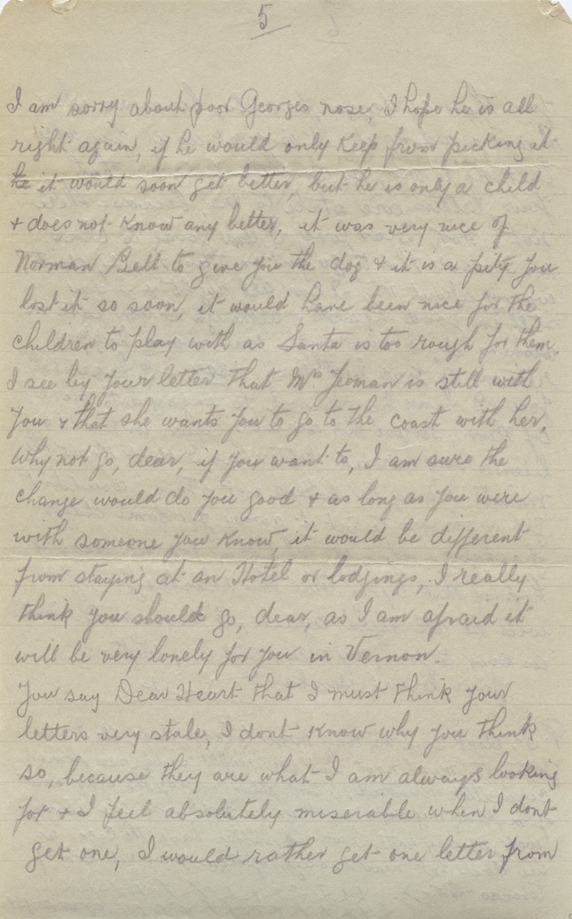 5
I am sorry about poor Georges nose, I hope he is all
right again, if he would only keep from picking at
he it would soon get better, but he is only a child
& does not know any better, it was very nice of
Norman Bell to give you the dog & it is a pity you
lost it so soon, it would have been nice for the
children to play with as Santa is too rough for them.
I see by your letter that Mrs Jeoman is still with
you & that she wants you to go to the coast with her,
why not go, dear, if you want to, I am sure the
change would do you good & as long as you were
with someone you know, it would be different
from staying at an Hotel or lodgings, I really
think you should go, dear, as I am afraid it
will be very lonely for you in Vernon.
You say Dear Heart that I must think your
letters very stale, I dont know why you think
so, because they are what I am always looking
for & I feel absolutely miserable when I dont
get one, I would rather get one letter from